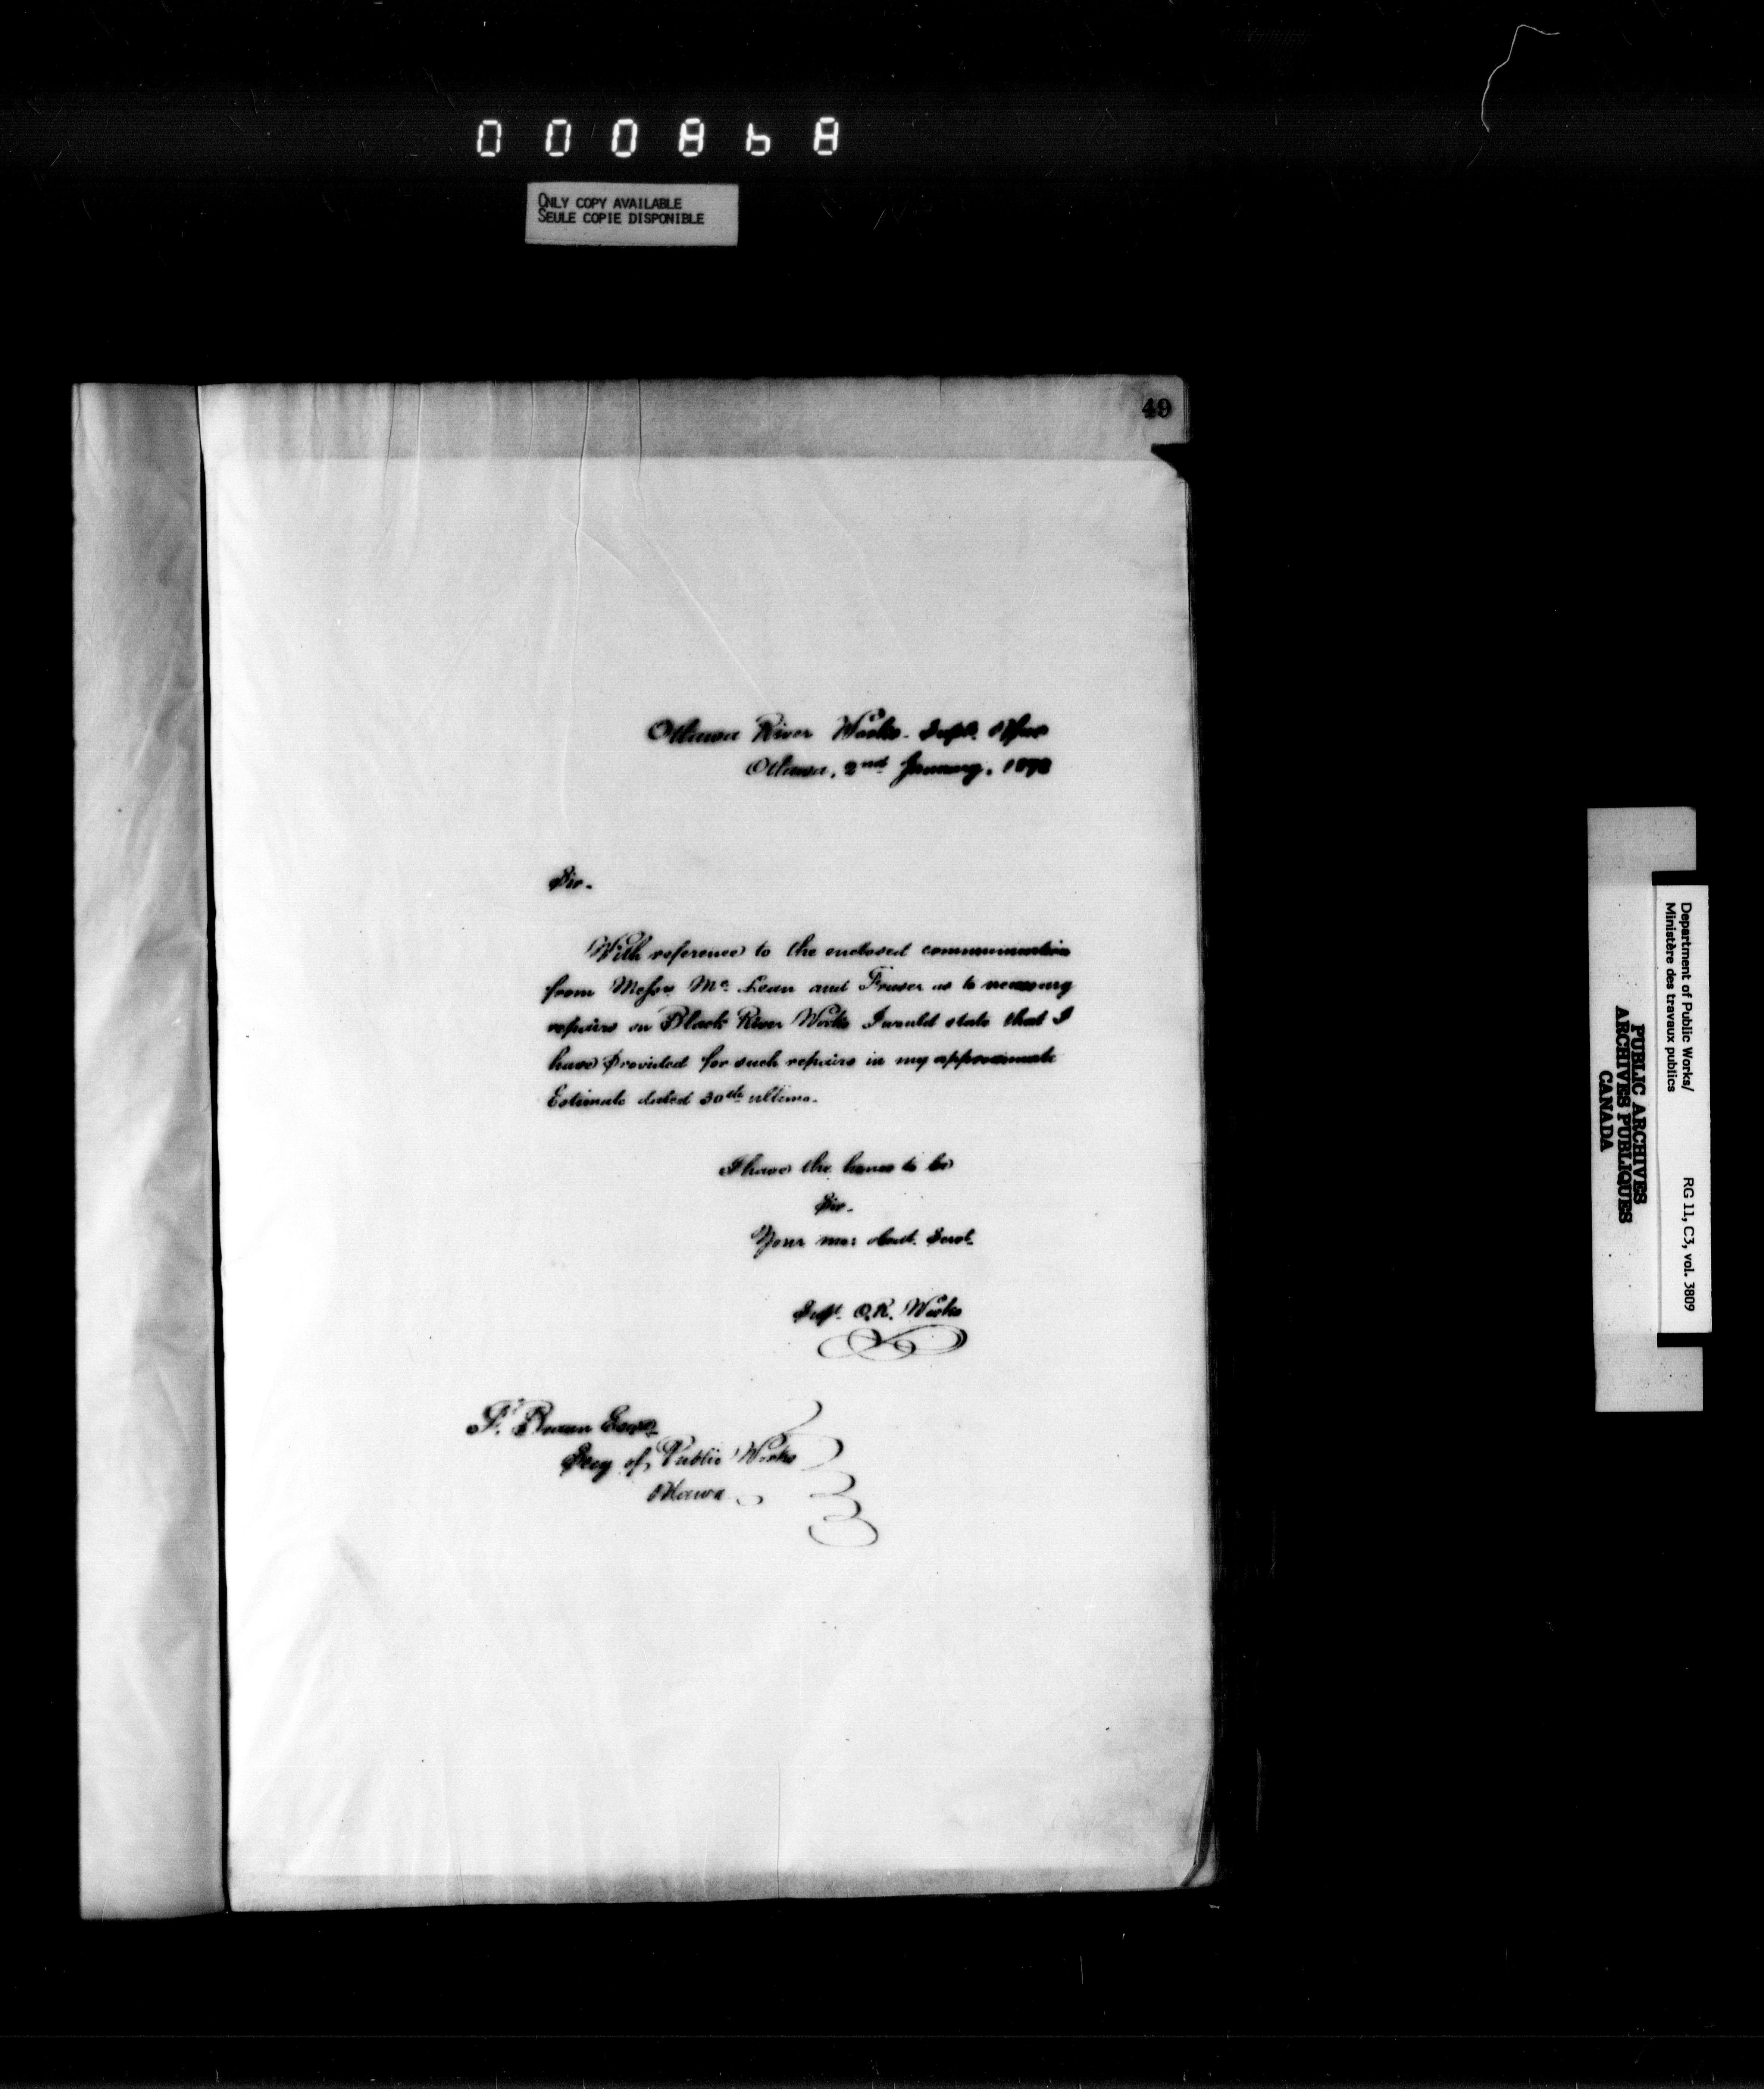 000868
ONLY COPY AVAILABLE
SEULE COPIE DISPONIBLE
49
Ottawa River Works. Supt. Office
Ottawa, 2nd January, 1872
Sir.
With reference to the enclosed communication
from Messrs Mc Lean and Fraser as to necessary
repairs on Black River Works I would state that I
have provided for such repairs in my approximate
Estimate dated 30th ultimo.
I have the honor to be
Sir.
Your mo: obedt. Servt.
Supt. O.R. Works
F. Braun Esqre
Secy of Public Works
Ottawa
Department of Public Works/
Ministère des travaux publics
RG 11, C3, vol. 3809
PUBLIC ARCHIVES
ARCHIVES PUBLIQUES
CANADA